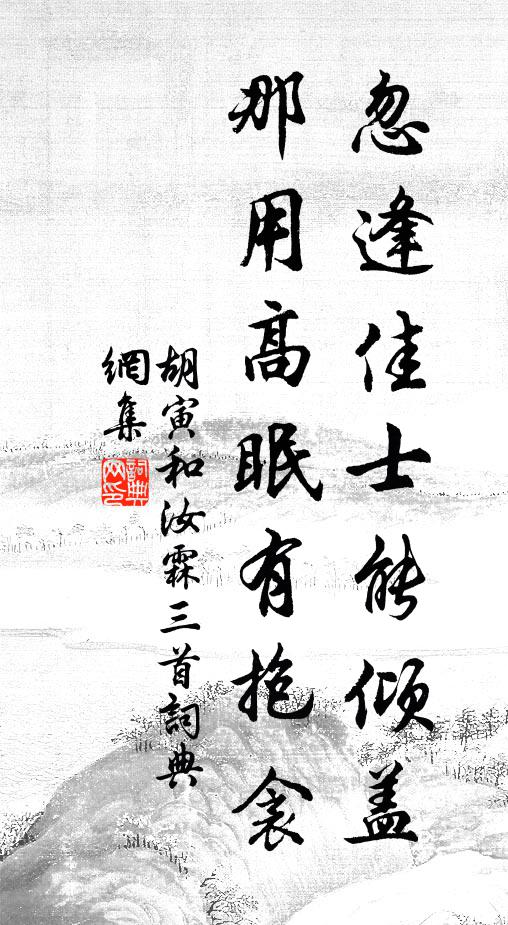 忽逢佳士能傾盖
那用高眠有抱衾
胡寅和汝霖三首詞典
網集
詞典網印